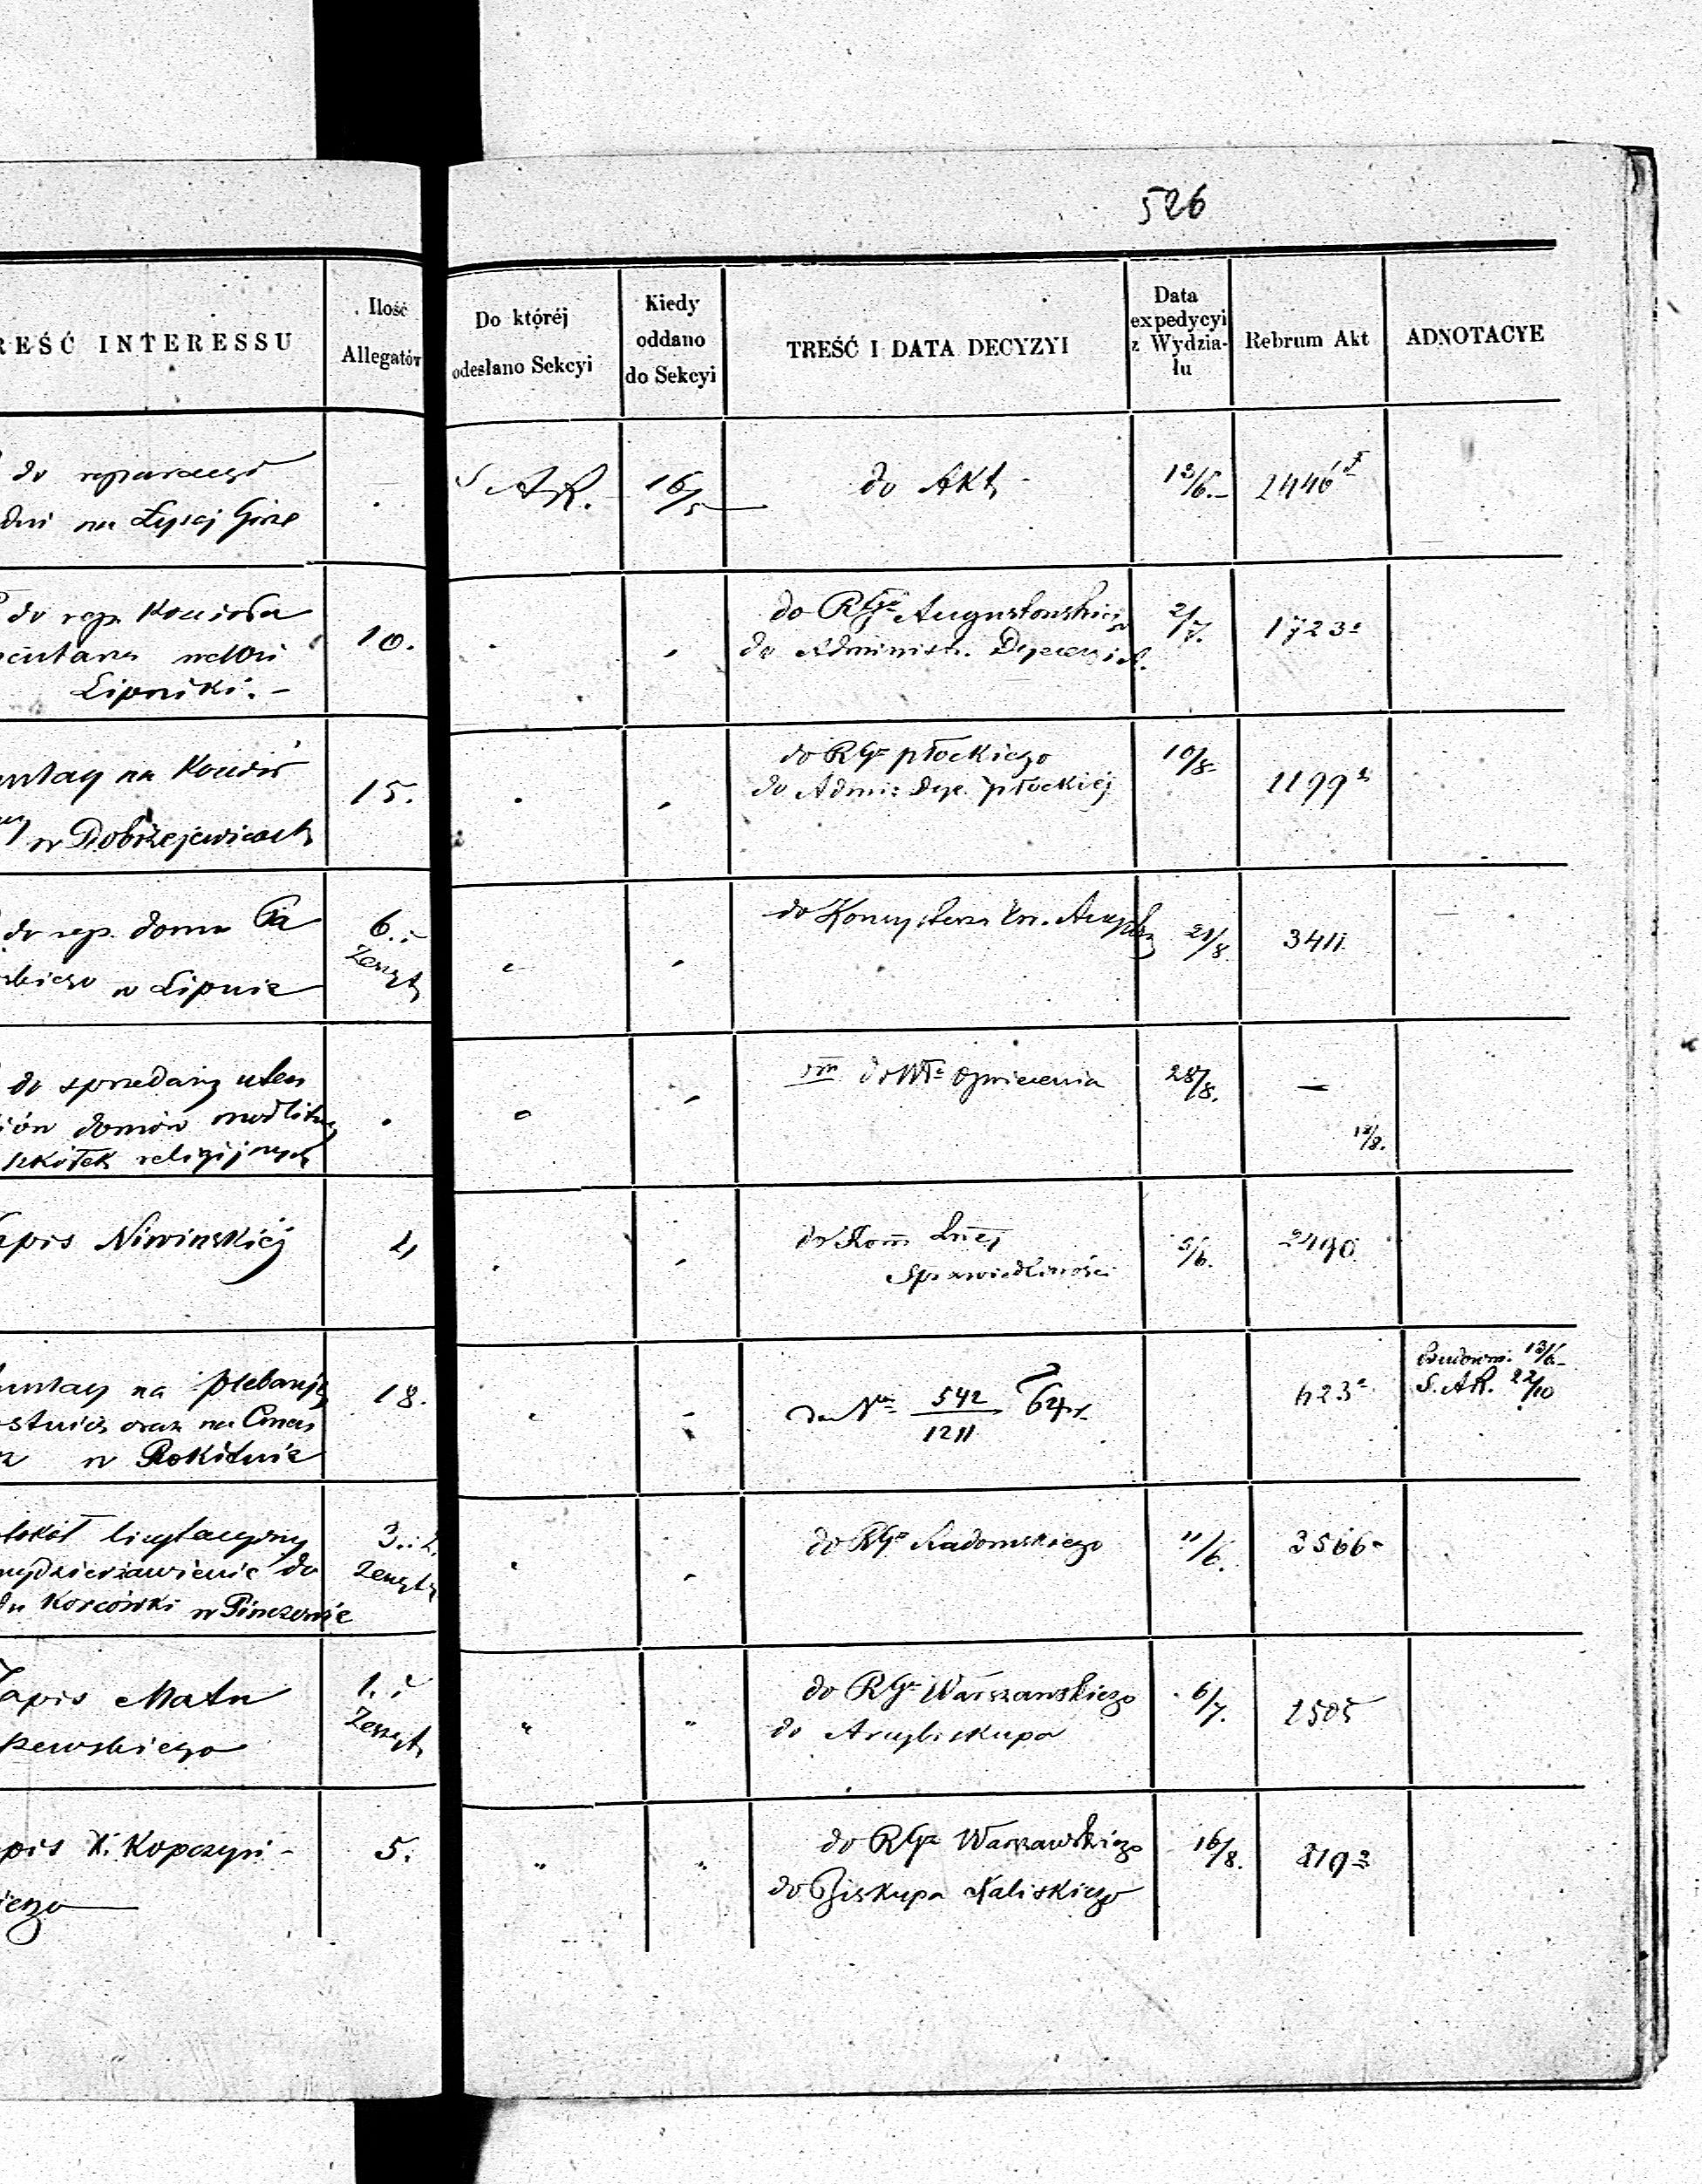 526
REŚĆ INTERESSU
Ilość
Allegatów
Do któréj
odesłano Sekcyi
Kiedy
oddano
do Sekcyi
TREŚĆ I DATA DECYZYI
Data
expedycyi
z Wydzia-
łu
Rebrum Akt
ADNOTACYE
do reparacyi
na Łysej Górze
S AR.
16/5
do Akt
13/6.
2446
do rep. Kościoła
Lipniki.
10.
do RGo Augustowskiego
do Administ.
2/7.
1723
na Kościół
w Dobrzejewicach
15.
do RGo płockiego
do Admi: Dye. płockiéj
10/8
1199
do rep. domu
w Lipnie
6. i
Zeszyt
do
21/8
3411
do sprzedaży uten
domów modlitwy
szkółek religijnych
.
do oświecenia
28/8.
—
18/8.
apis Niwinskiéj
4
do Kom
Sprawiedliwości
5/6.
2490
na plebanję
oraz na Cmen
w Rokitnie
18.
do No 542/1211
623
13/6
S. AR. 22/10
tokół licytacyjny
wydzierżawienie do
w Pinczowie
3. i 2.
Zeszyty
do RGo Radomskiego
11/6.
3566
Zapis Matu
szewskiego
1. i
Zeszyt
"
"
do RGo Warszawskiego
do Arcybiskupa
6/7.
2505
pis X. Kopczyń-
iego
5.
"
"
do RGo Warszawskiego
do Biskupa Kaliskiego
16/8.
2193